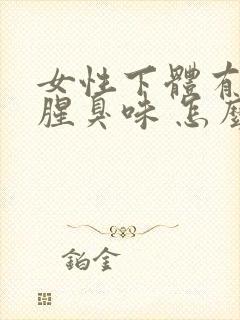 女性下體有
腥臭味 怎麼
鉑金